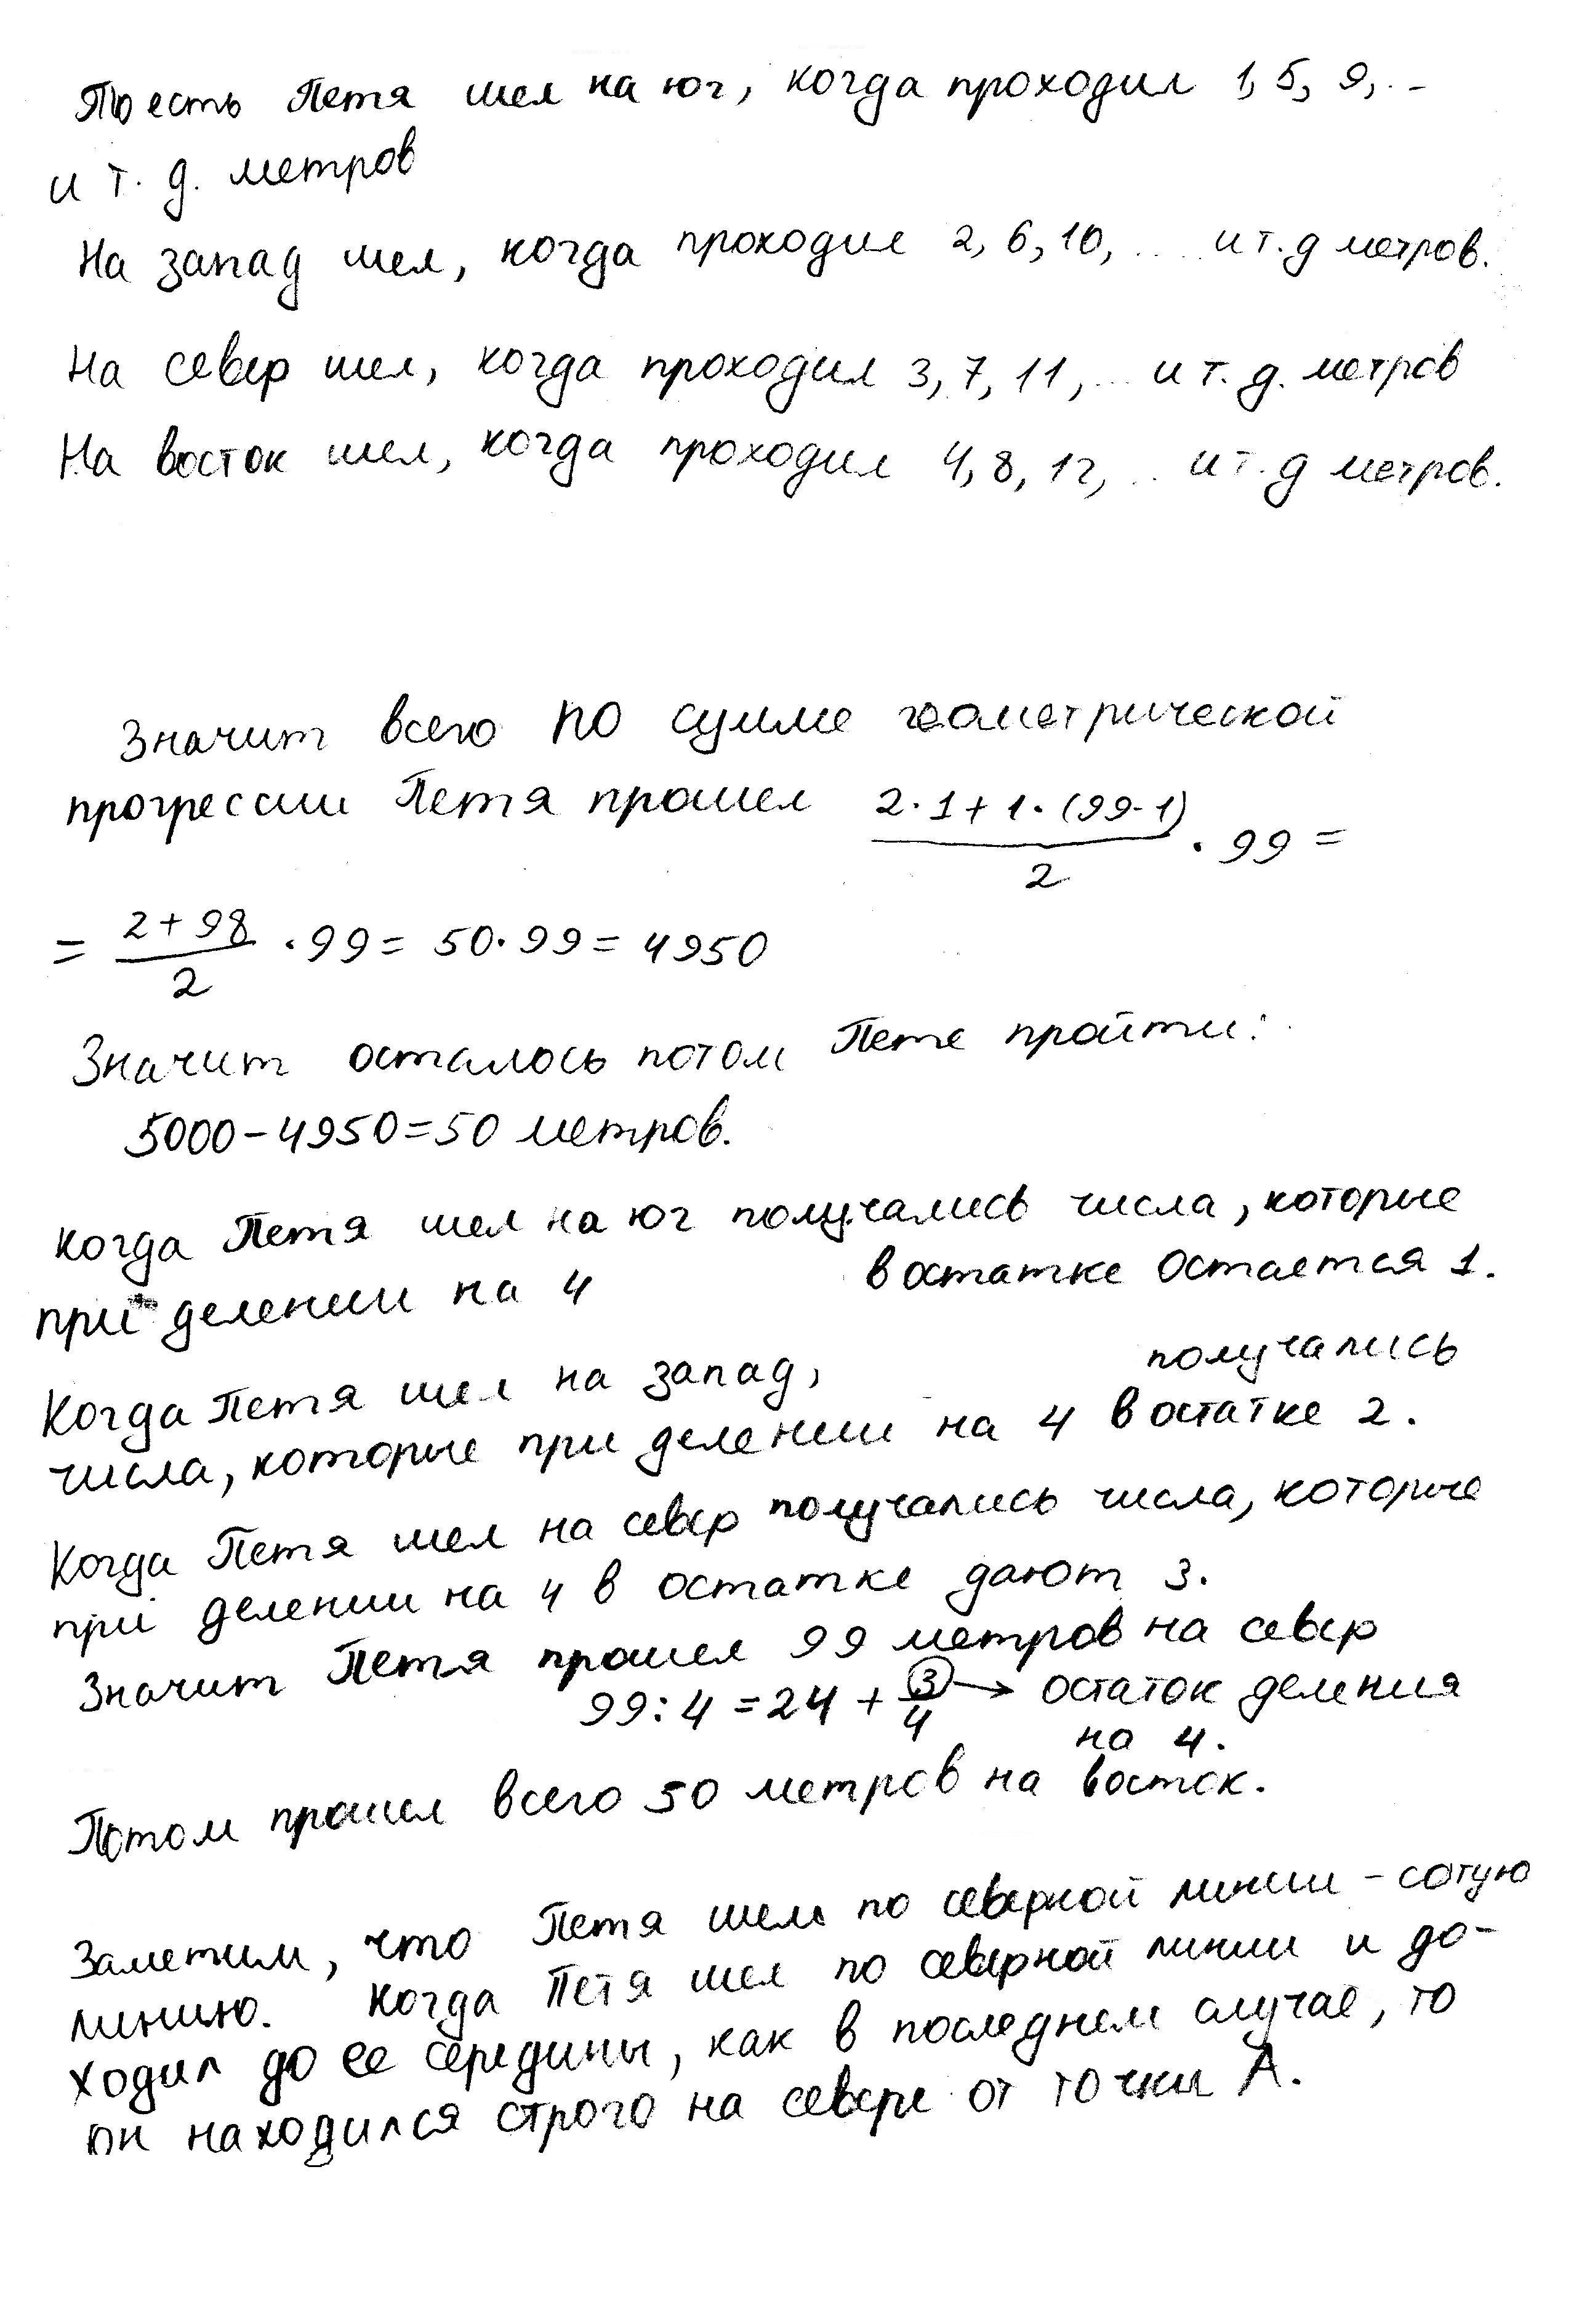 То есть Петя шел на юг, когда проходил 1, 5, 9, ..
и т. д. метров
На запад шел, когда проходил 2, 6, 10, .... и т. д метров.
На север шел, когда проходил 3, 7, 11, ... и т. д. метров
На восток шел, когда проходил 4, 8, 12, ... и т. д метров.
Значит всего по сумме геометрической
прогрессии Петя прошел (2·1+1·(99-1))/2 · 99 =
= (2+98)/2 · 99 = 50·99 = 4950
Значит осталось потом Пете пройти:
5000-4950=50 метров.
Когда Петя шел на юг получались числа, которые
при делении на 4 в остатке остается 1.
Когда Петя шел на запад, получались
числа, которые при делении на 4 в остатке 2.
Когда Петя шел на север получались числа, которые
при делении на 4 в остатке дают 3.
Значит Петя прошел 99 метров на север
99:4 = 24 + 3/4 → остаток деления
на 4.
Потом прошел всего 50 метров на восток.
Заметим, что Петя шел по северной линии - сотую
линию. Когда Петя шел по северной линии и до-
ходил до ее середины, как в последнем случае, то
он находился строго на севере от точки А.